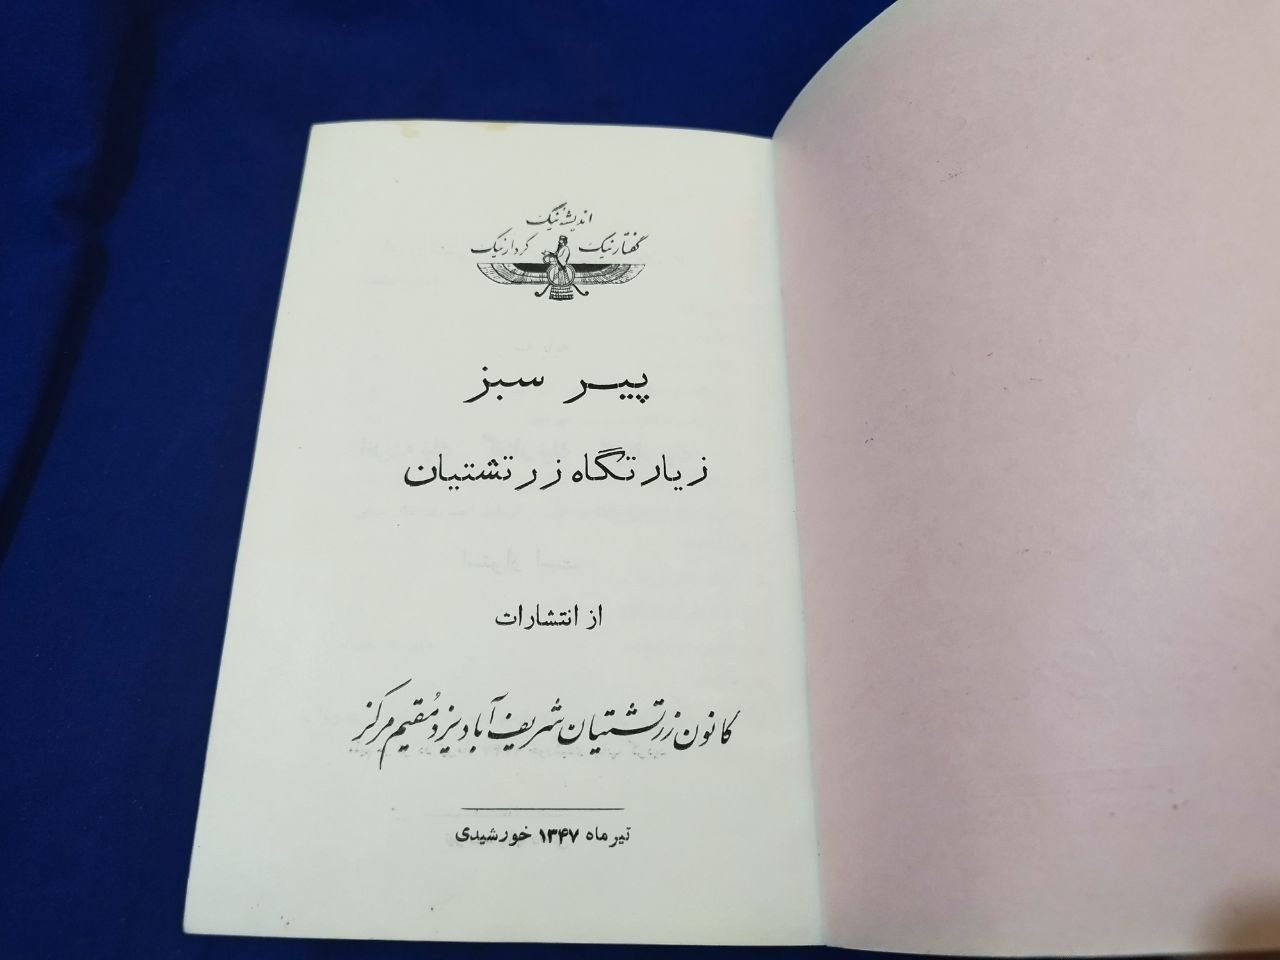 اندیشه نیک
گفتار نیک کردار نیک
پیر سبز
زیارتگاه زرتشتیان
از انتشارات
کانون زرتشتیان شریف آباد یزد مقیم مرکز
تیر ماه ۱۳۴۷ خورشیدی